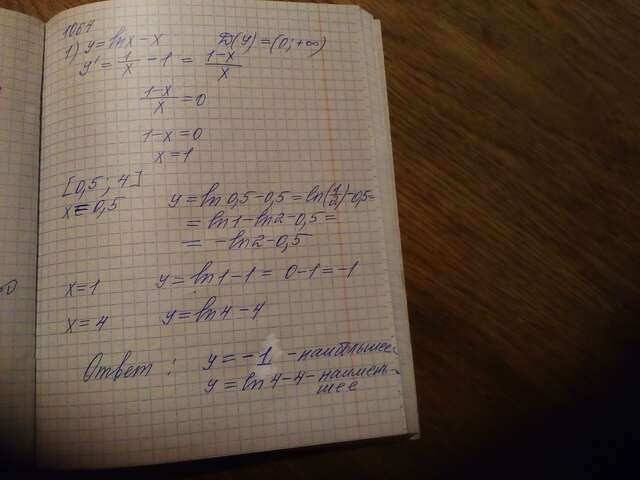 1064
1) y = ln x - x D(y) = (0; +∞)
y' = 1/x - 1 = 1-x/x
1-x/x = 0
1-x = 0
x = 1
[0,5; 4]
x = 0,5 y = ln 0,5 - 0,5 = ln(1/2) - 0,5 =
= ln 1 - ln 2 - 0,5 =
= - ln 2 - 0,5
x = 1 y = ln 1 - 1 = 0 - 1 = -1
x = 4 y = ln 4 - 4
Ответ: y = -1 - наибльшее
y = ln 4 - 4 - наимень-
шее